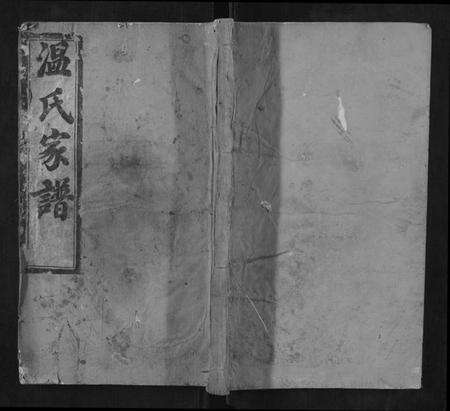 温氏家譜